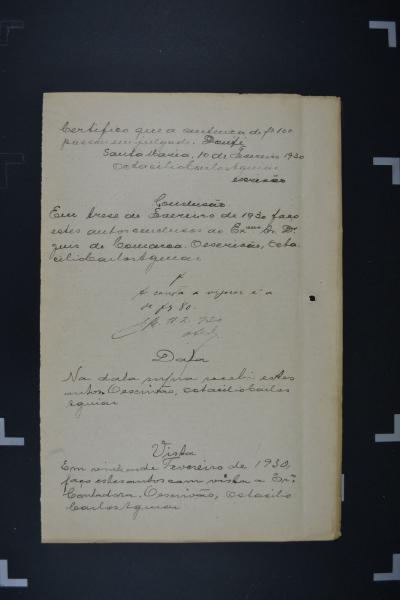 Certifico que a sentença de fs 100
passou em julgado. Doufé
Santa Maria, 10 de Fevereiro 1930
Octacilio Carlos Aguiar
escrivão
Conclusão
Em trese de Fevereiro de 1930 faço
estes autos conclusos ao Exmo Sr. Dr.
Juis de Comarca. Oescrivão, Octa
cilio Carlos Aguiar
A conta a vigorar é a
de fs 80.
S.M. 17.2.930
Data
Na data supra recebi estes
autos. Oescrivão, Octacilio Carlos
Aguiar
Vista
Em vinte de Fevereiro de 1930,
faço estes autos com vista a Exma
Contadora. Oescrivão, Octacilio
Carlos Aguiar